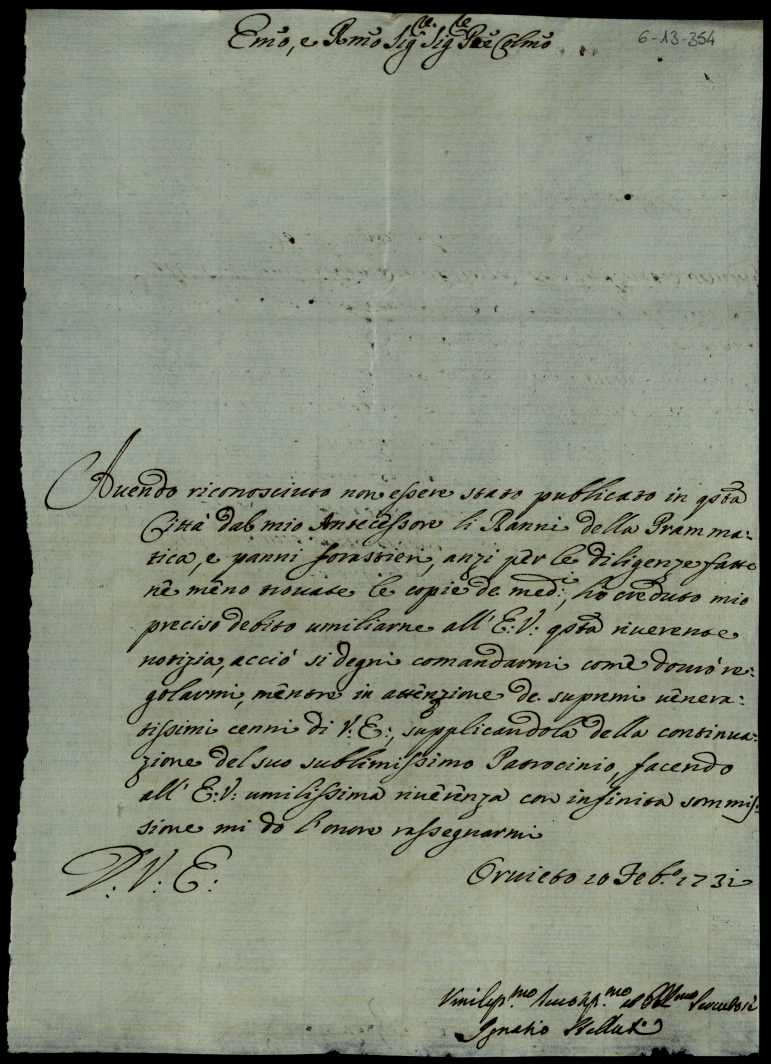 Em̃o, e Rm̃o Sig.re Sig.re Pñe Colmo
6-13-354
Auendo riconosciuto non essere stato publicato in qsta
Città dal mio Antecessore li Banni della Gramma-
tica, e panni forastieri, anzi per le diligenze fatte
nè meno trouate le copie de med.i, hò creduto mio
preciso debito umiliarne all' E: V: qsta riuerente
notizia, acciò si degni comandarmi come dourò re-
golarmi, mentre in attenzione de supremi uenera-
tissimi cenni di V: E:, supplicandola della continua-
zione del suo sublimissimo Patrocinio, facendo
all' E: V: umilissima riuerenza con infinita sommis-
sione mi do l'onore rassegnarmi
D: V: E:
Oruieto 10 Feb.o 1731
Vmiliss.mo Deuot.mo et Obl.mo Seruitore
Ignatio